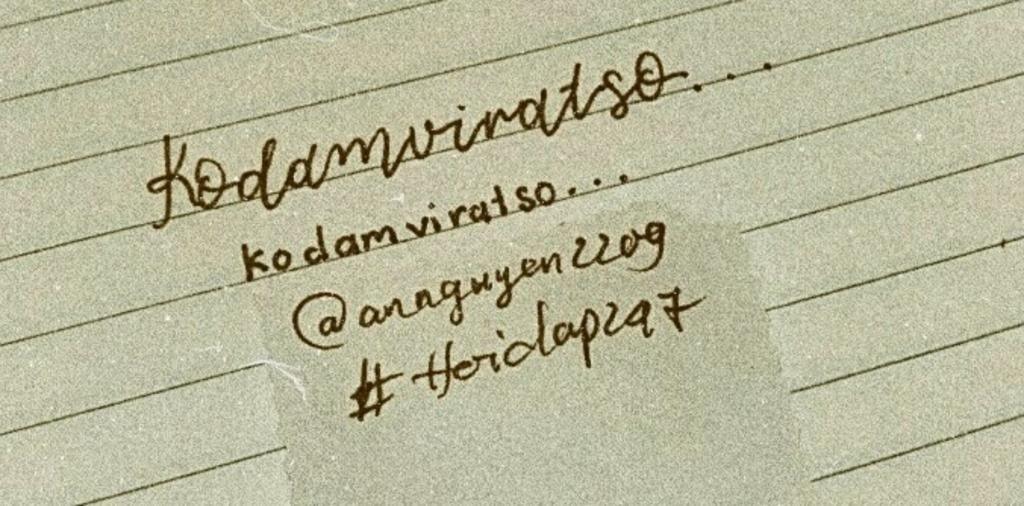 Kodamviratso...
kodamviratso...
@annguyen2209
#Hoidap247